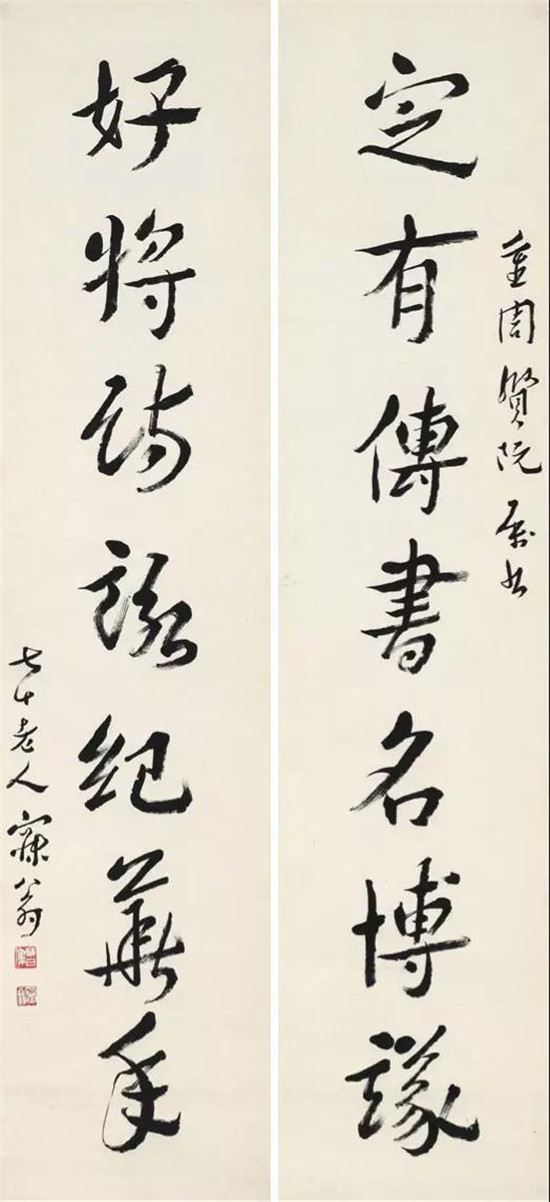 重周賢阮屬書
定有傳書名博議
好將詩紀華年
七十老人寐翁